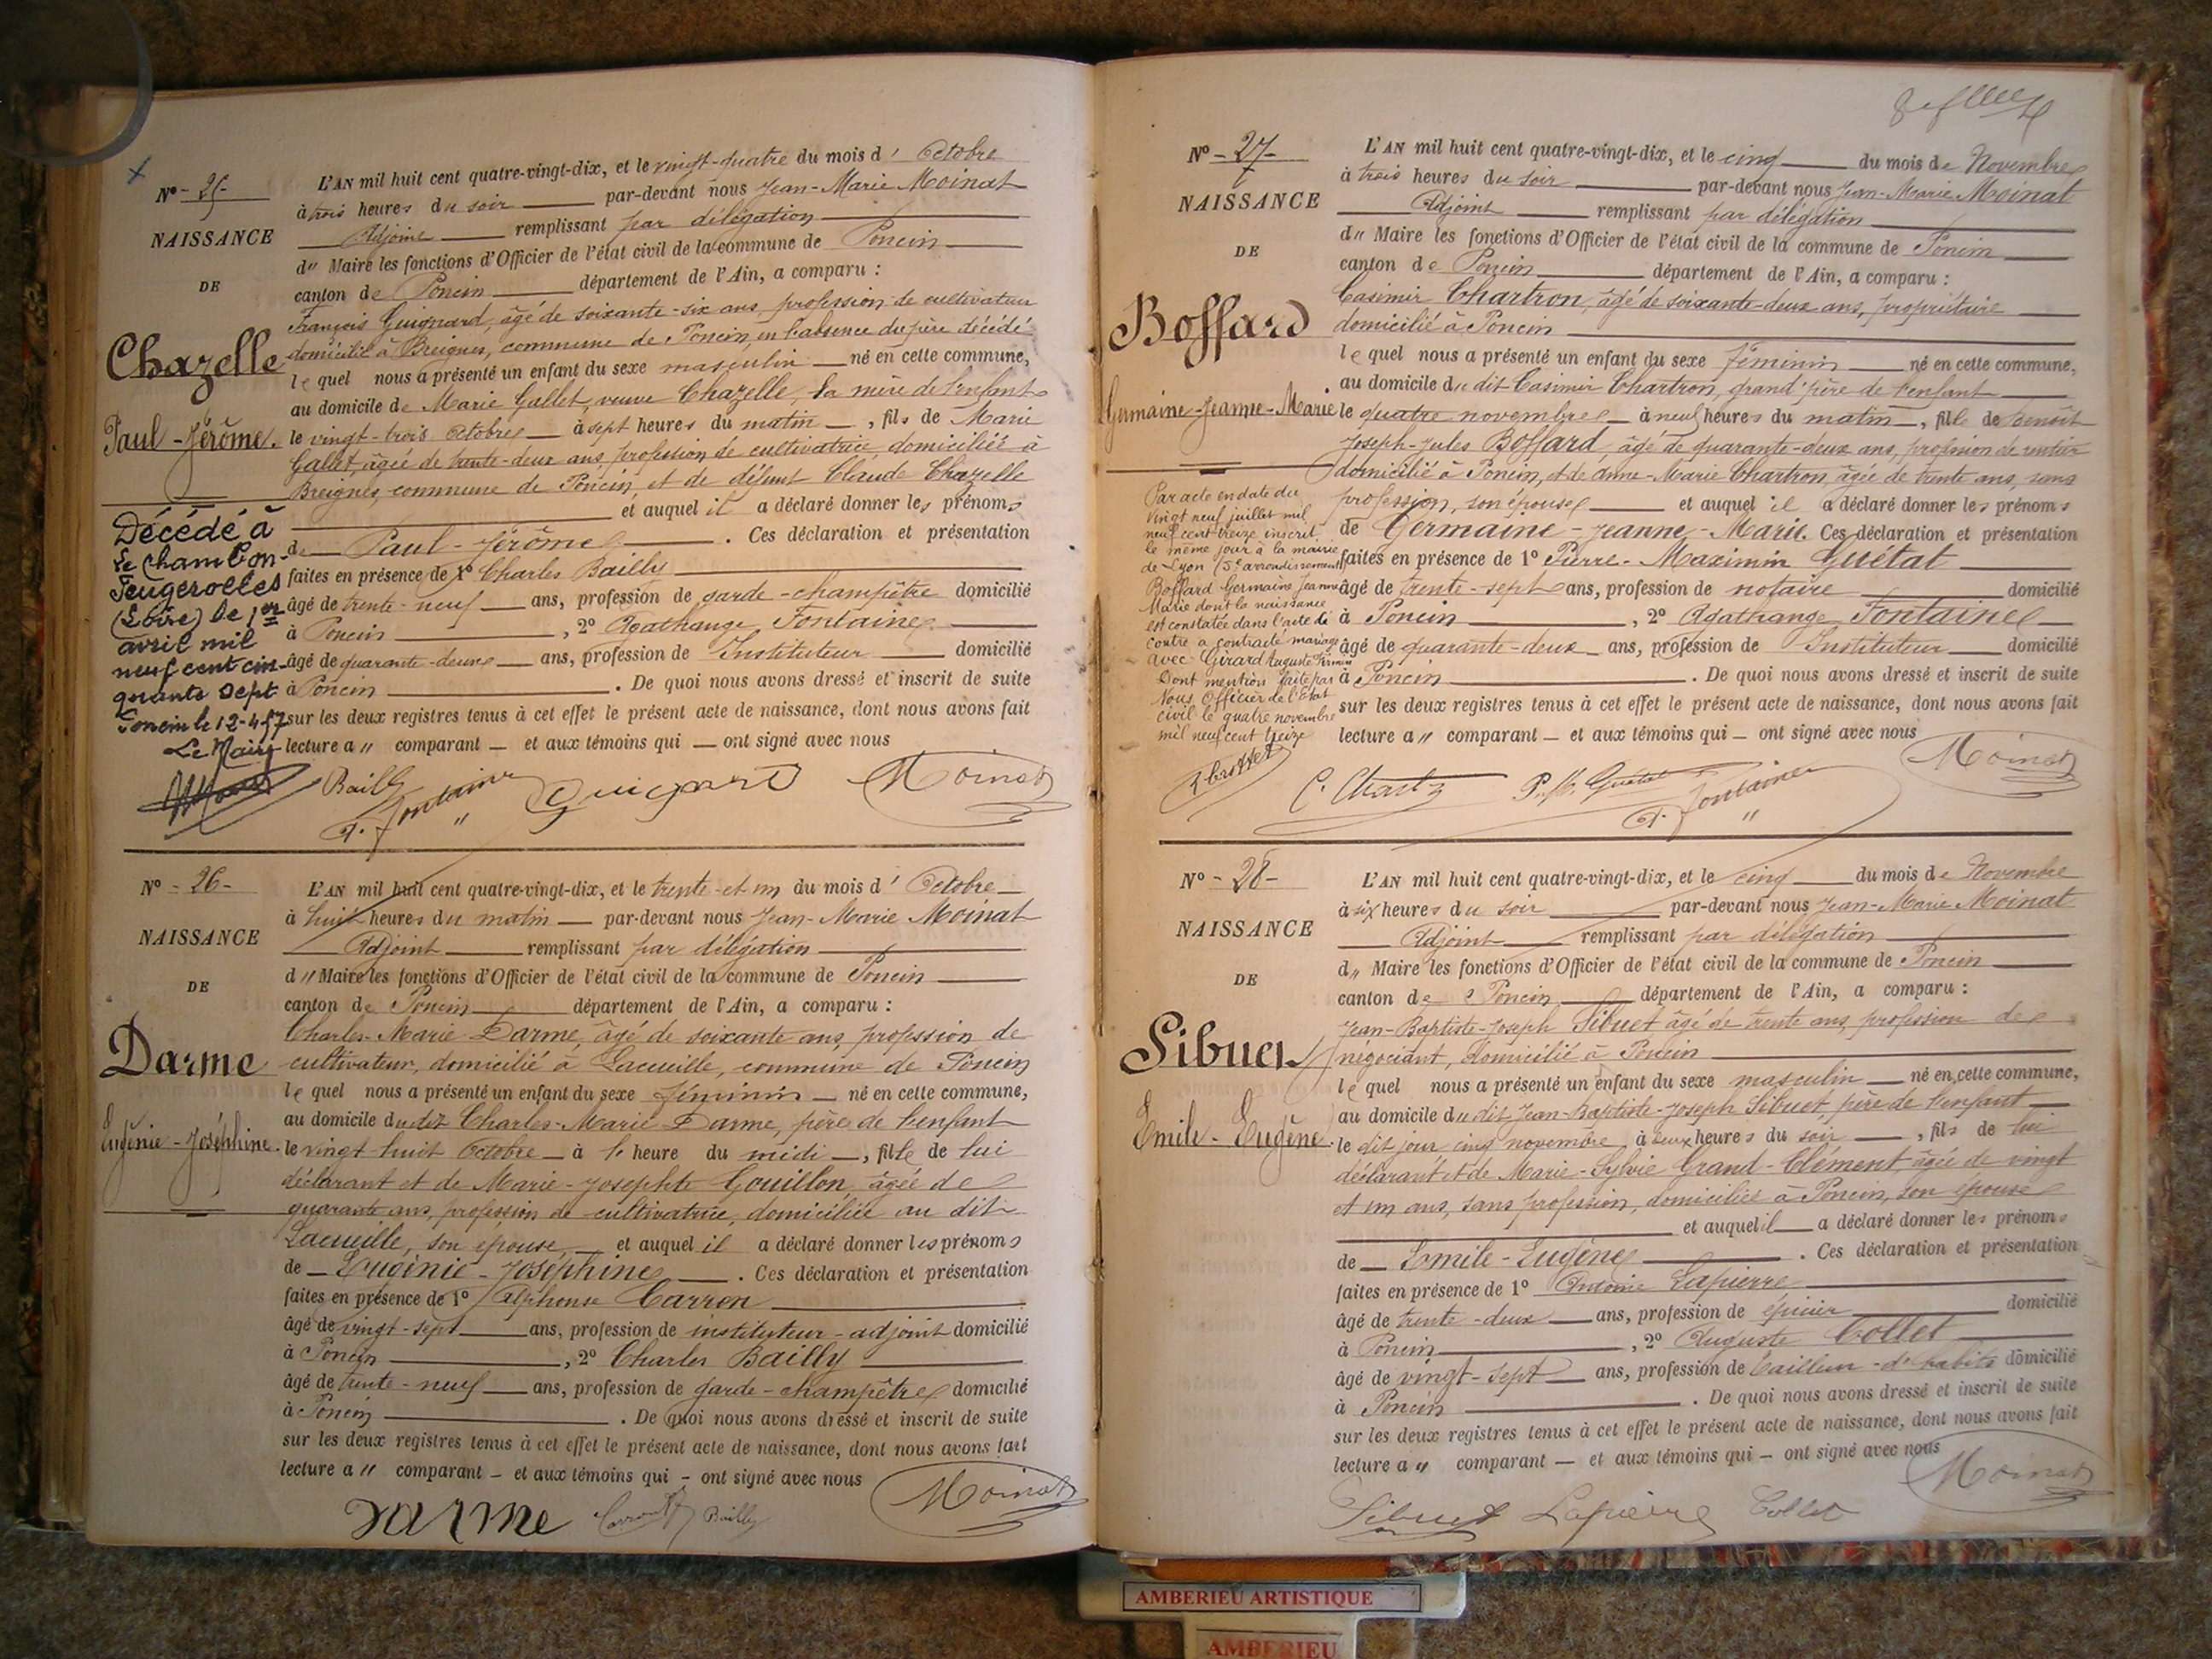 Nº - 25 -
NAISSANCE
DE
Chazelle
Paul-Jérôme.
Décédé à
Le Chambon-
Feugerolles
(Loire) le 1er
avril mil
neuf cent cin-
quante sept
Poncin le 12-4-57
Le Maire
L'AN mil huit cent quatre-vingt-dix, et le vingt-quatre du mois d' Octobre
à trois heures du soir par-devant nous Jean-Marie Moinat
Adjoint remplissant par délégation
d" Maire les fonctions d'Officier de l'état civil de la commune de Poncin
canton de Poncin département de l'Ain, a comparu :
François Guignard, âgé de soixante-six ans, profession de cultivateur
domicilié à Breignes, commune de Poncin, en l'absence du père décédé
lequel nous a présenté un enfant du sexe masculin né en cette commune,
au domicile de Marie Gallet, veuve Chazelle, la mère de l'enfant
le vingt-trois Octobre à sept heures du matin, fils de Marie
Gallet, âgée de trente-deux ans, profession de cultivatrice, domiciliée à
Breignes, commune de Poncin, et de défunt Claude Chazelle
et auquel il a déclaré donner les prénoms
de Paul-Jérôme. Ces déclaration et présentation
faites en présence de 1º Charles Bailly
âgé de trente-neuf ans, profession de garde-champêtre domicilié
à Poncin, 2º Agathange Fontaine
âgé de quarante-deux ans, profession de Instituteur domicilié
à Poncin. De quoi nous avons dressé et inscrit de suite
sur les deux registres tenus à cet effet le présent acte de naissance, dont nous avons fait
lecture a " comparant — et aux témoins qui — ont signé avec nous
Bailly A. Fontaine Guignard Moinat
Nº - 26 -
NAISSANCE
DE
Darme
Eugénie-Joséphine.
L'AN mil huit cent quatre-vingt-dix, et le trente-et-un du mois d' Octobre
à huit heures du matin par-devant nous Jean-Marie Moinat
Adjoint remplissant par délégation
d" Maire les fonctions d'Officier de l'état civil de la commune de Poncin
canton de Poncin département de l'Ain, a comparu :
Charles-Marie Darme, âgé de soixante ans, profession de
cultivateur, domicilié à Lacueille, commune de Poncin
lequel nous a présenté un enfant du sexe féminin né en cette commune,
au domicile dudit Charles-Marie Darme, père de l'enfant
le vingt huit Octobre à 1e heure du midi, fille de lui
déclarant et de Marie-Josephte Gouillon, âgée de
quarante ans, profession de cultivatrice, domiciliée au dit
Lacueille, son épouse, et auquel il a déclaré donner les prénoms
de Eugénie-Joséphine. Ces déclaration et présentation
faites en présence de 1º Alphonse Carron
âgé de vingt-sept ans, profession de instituteur-adjoint domicilié
à Poncin, 2º Charles Bailly
âgé de trente-neuf ans, profession de garde-champêtre domicilié
à Poncin. De quoi nous avons dressé et inscrit de suite
sur les deux registres tenus à cet effet le présent acte de naissance, dont nous avons fait
lecture a " comparant — et aux témoins qui — ont signé avec nous
Darme Bailly Moinat
Nº - 27 -
NAISSANCE
DE
Boffard
Germaine-Jeanne-Marie
Par acte en date du
vingt neuf juillet mil
neuf cent treize inscrit
le même jour à la mairie
de Lyon (5e arrondissement)
Boffard Germaine Jeanne
Marie dont la naissance
est constatée dans l'acte ci
contre a contracté mariage
avec Girard Auguste Firmin
Dont mention faite par
Nous Officier de l'Etat
civil le quatre novembre
mil neuf cent treize
L'AN mil huit cent quatre-vingt-dix, et le cinq du mois de Novembre
à trois heures du soir par-devant nous Jean-Marie Moinat
Adjoint remplissant par délégation
d" Maire les fonctions d'Officier de l'état civil de la commune de Poncin
canton de Poncin département de l'Ain, a comparu :
Casimir Chartron, âgé de soixante-deux ans, propriétaire
domicilié à Poncin
lequel nous a présenté un enfant du sexe féminin né en cette commune,
au domicile du dit Casimir Chartron, grand'père de l'enfant
le quatre novembre à neuf heures du matin, fille de Benoît
Joseph-Jules Boffard, âgé de quarante-deux ans, profession de rentier
domicilié à Poncin, et de Anne-Marie Chartron, âgée de trente ans, sans
profession, son épouse et auquel il a déclaré donner les prénoms
de Germaine-Jeanne-Marie. Ces déclaration et présentation
faites en présence de 1º Pierre-Maximin Guétat
âgé de trente-sept ans, profession de notaire domicilié
à Poncin, 2º Agathange Fontaine
âgé de quarante-deux ans, profession de Instituteur domicilié
à Poncin. De quoi nous avons dressé et inscrit de suite
sur les deux registres tenus à cet effet le présent acte de naissance, dont nous avons fait
lecture a " comparant — et aux témoins qui — ont signé avec nous
P. M. Guétat A. Fontaine Moinat
Nº - 28 -
NAISSANCE
DE
Sibuet
Emile-Eugène
L'AN mil huit cent quatre-vingt-dix, et le cinq du mois de Novembre
à six heures du soir par-devant nous Jean-Marie Moinat
Adjoint remplissant par délégation
d" Maire les fonctions d'Officier de l'état civil de la commune de Poncin
canton de Poncin département de l'Ain, a comparu :
Jean-Baptiste-Joseph Sibuet âgé de trente ans, profession de
négociant, domicilié à Poncin
lequel nous a présenté un enfant du sexe masculin né en cette commune,
au domicile du dit Jean-Baptiste-Joseph Sibuet, père de l'enfant
le dit jour cinq novembre, à deux heures du soir, fils de lui
déclarant et de Marie-Sylvie Grand-Clément, âgée de vingt
et un ans, sans profession, domiciliée à Poncin, son épouse
et auquel il a déclaré donner les prénoms
de Emile-Eugène. Ces déclaration et présentation
faites en présence de 1º Antoine Lapierre
âgé de trente-deux ans, profession de épicier domicilié
à Poncin, 2º Auguste Collet
âgé de vingt-sept ans, profession de tailleur-d'habits domicilié
à Poncin. De quoi nous avons dressé et inscrit de suite
sur les deux registres tenus à cet effet le présent acte de naissance, dont nous avons fait
lecture a " comparant — et aux témoins qui — ont signé avec nous
Sibuet Lapierre Collet Moinat
AMBERIEU ARTISTIQUE
AMBERIEU